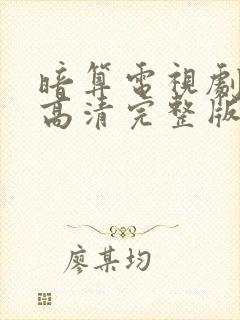 暗算電視劇
高清完整版
廖某均